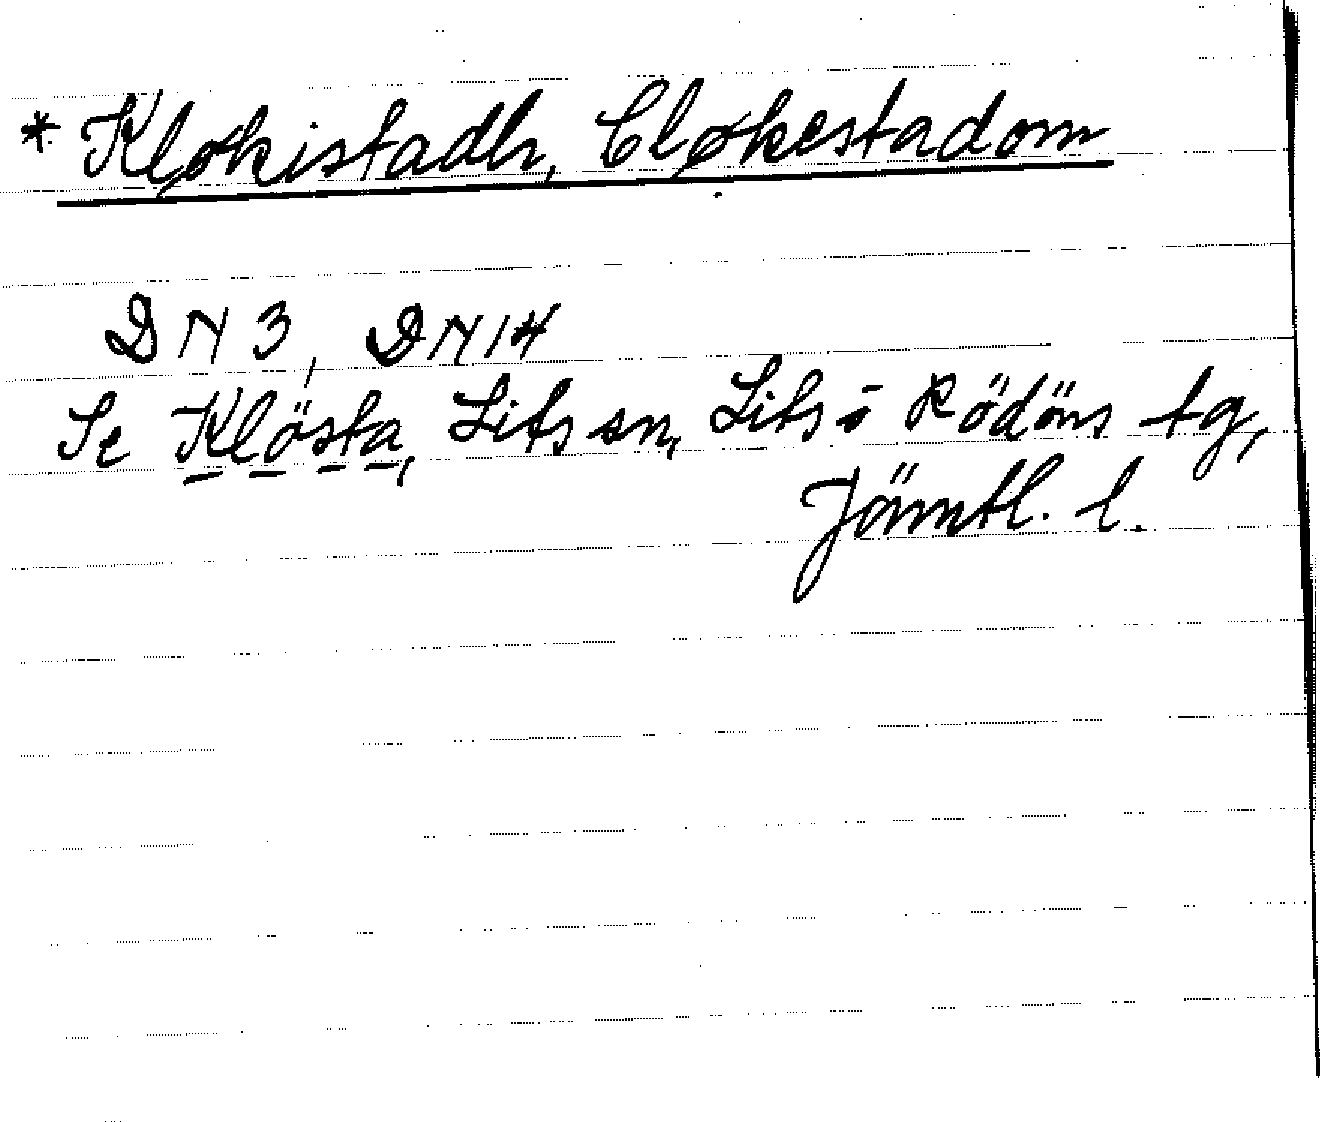 * Kløkistadh, Cløkestadom
DN 3, DN 14
Se Klösta, Lits sn, Lits o Rödöns tg,
Jämtl. l.